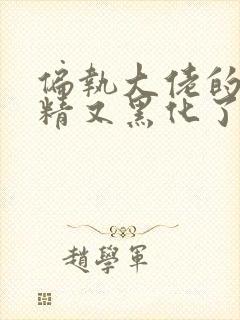 偏執大佬的
精又黑化了
趙學軍